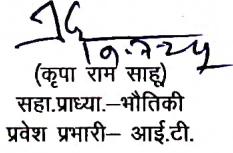 (कृपा राम साहू)
सहा.प्राध्या.–भौतिकी
प्रवेश प्रभारी– आई.टी.